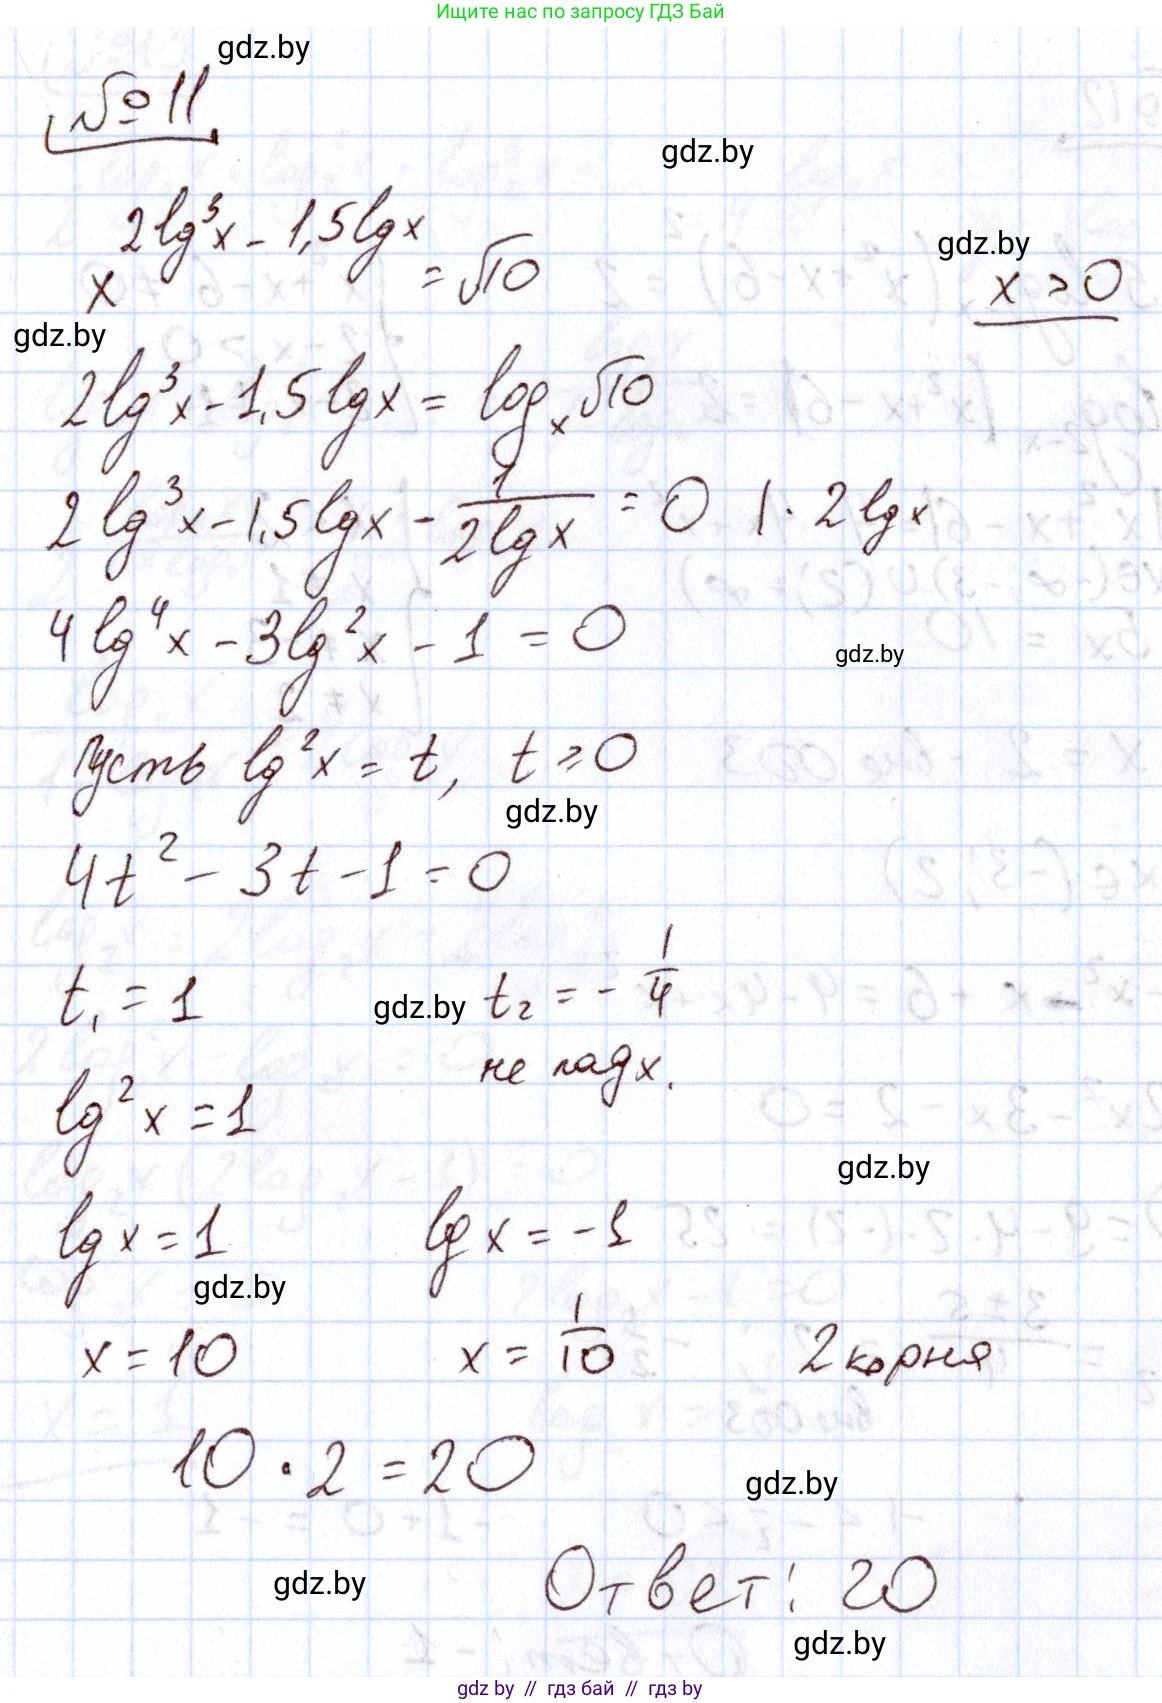 Ищите нас по запросу ГДЗ Бай
gdz.by
№ 11
gdz.by
x^(2lg³x - 1,5lgx) = √10
gdz.by
x > 0
gdz.by
2lg³x - 1,5lgx = logₓ√10
2lg³x - 1,5lgx - 1/(2lgx) = 0 | · 2lgx
4lg⁴x - 3lg²x - 1 = 0
gdz.by
Пусть lg²x = t, t ≥ 0
gdz.by
4t² - 3t - 1 = 0
t₁ = 1 gdz.by t₂ = - 1/4
не подх.
lg²x = 1
gdz.by
lgx = 1 lgx = -1
gdz.by
x = 10 x = 1/10 2 корня
10 · 2 = 20
gdz.by
gdz.by
Ответ: 20
gdz.by
gdz by // гдз бай // гдз by